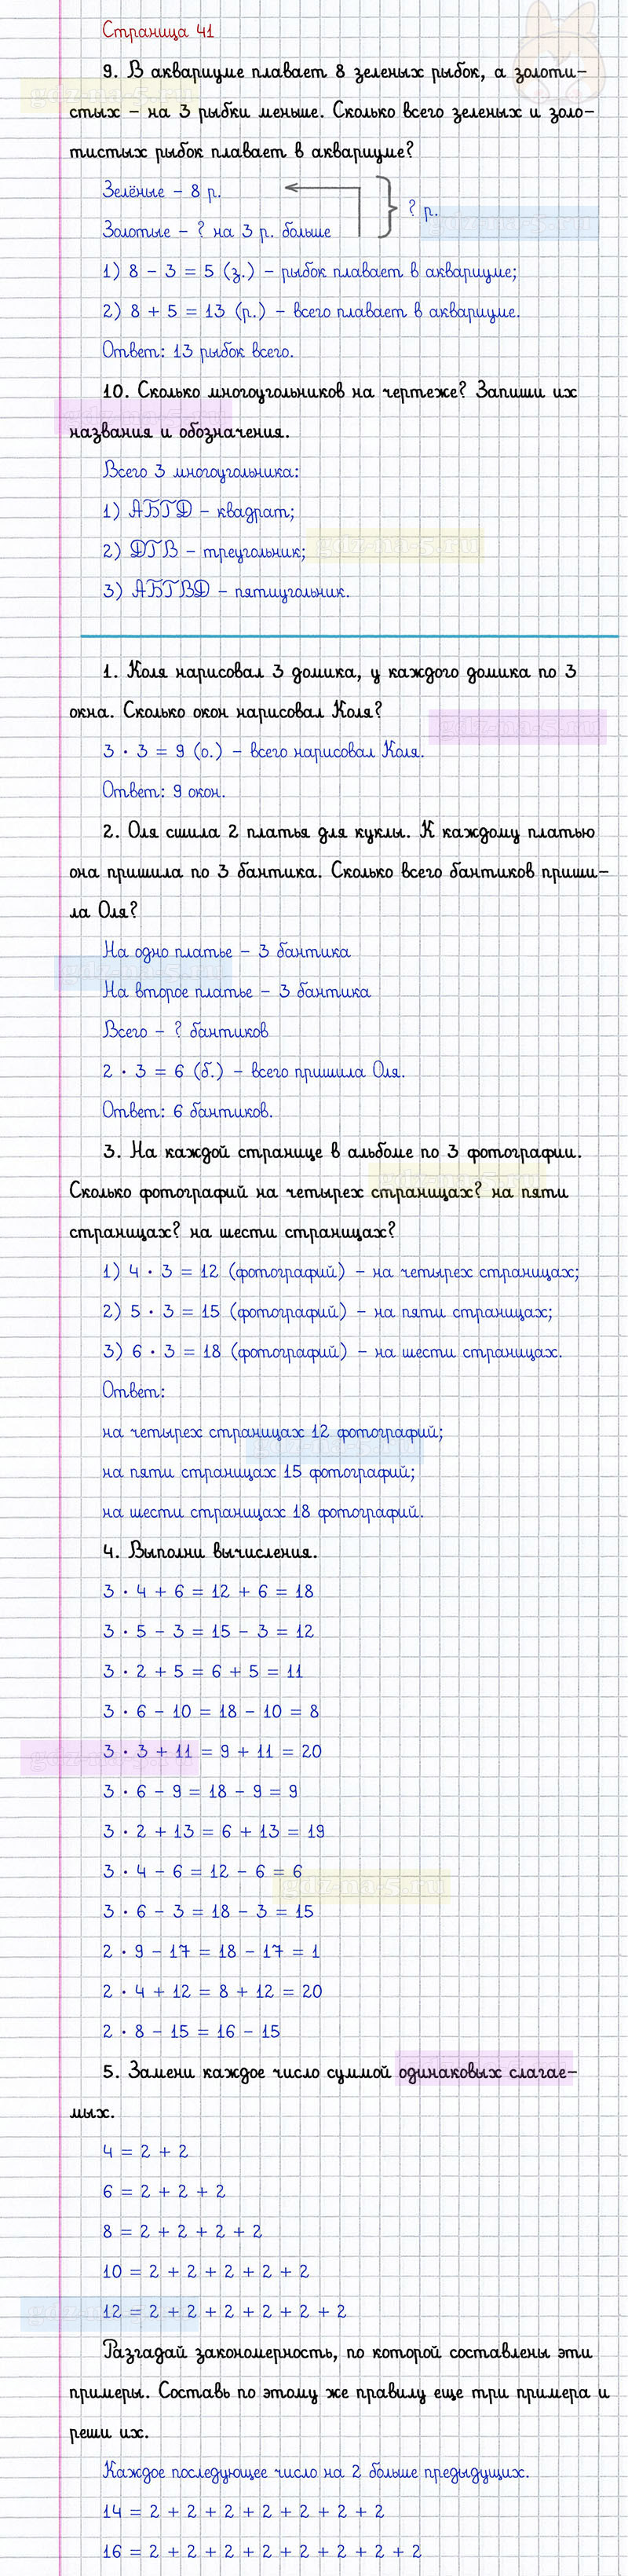 Страница 41
9. В аквариуме плавает 8 зеленых рыбок, а золоти-
стых – на 3 рыбки меньше. Сколько всего зеленых и золо-
тистых рыбок плавает в аквариуме?
Зелёные – 8 р.
? р.
Золотые – ? на 3 р. больше
1) 8 – 3 = 5 (з.) – рыбок плавает в аквариуме;
2) 8 + 5 = 13 (р.) – всего плавает в аквариуме.
Ответ: 13 рыбок всего.
10. Сколько многоугольников на чертеже? Запиши их
названия и обозначения.
Всего 3 многоугольника:
1) АБГД – квадрат;
2) ДГВ – треугольник;
3) АБГВД – пятиугольник.
1. Коля нарисовал 3 домика, у каждого домика по 3
окна. Сколько окон нарисовал Коля?
3 · 3 = 9 (о.) – всего нарисовал Коля.
Ответ: 9 окон.
2. Оля сшила 2 платья для куклы. К каждому платью
она пришила по 3 бантика. Сколько всего бантиков приши-
ла Оля?
На одно платье – 3 бантика
На второе платье – 3 бантика
Всего – ? бантиков
2 · 3 = 6 (б.) – всего пришила Оля.
Ответ: 6 бантиков.
3. На каждой странице в альбоме по 3 фотографии.
Сколько фотографий на четырех страницах? на пяти
страницах? на шести страницах?
1) 4 · 3 = 12 (фотографий) – на четырех страницах;
2) 5 · 3 = 15 (фотографий) – на пяти страницах;
3) 6 · 3 = 18 (фотографий) – на шести страницах.
Ответ:
на четырех страницах 12 фотографий;
на пяти страницах 15 фотографий;
на шести страницах 18 фотографий.
4. Выполни вычисления.
3 · 4 + 6 = 12 + 6 = 18
3 · 5 – 3 = 15 – 3 = 12
3 · 2 + 5 = 6 + 5 = 11
3 · 6 – 10 = 18 – 10 = 8
3 · 3 + 11 = 9 + 11 = 20
3 · 6 – 9 = 18 – 9 = 9
3 · 2 + 13 = 6 + 13 = 19
3 · 4 – 6 = 12 – 6 = 6
3 · 6 – 3 = 18 – 3 = 15
2 · 9 – 17 = 18 – 17 = 1
2 · 4 + 12 = 8 + 12 = 20
2 · 8 – 15 = 16 – 15
5. Замени каждое число суммой одинаковых слагае-
мых.
4 = 2 + 2
6 = 2 + 2 + 2
8 = 2 + 2 + 2 + 2
10 = 2 + 2 + 2 + 2 + 2
12 = 2 + 2 + 2 + 2 + 2 + 2
Разгадай закономерность, по которой составлены эти
примеры. Составь по этому же правилу еще три примера и
реши их.
Каждое последующее число на 2 больше предыдущих.
14 = 2 + 2 + 2 + 2 + 2 + 2 + 2
16 = 2 + 2 + 2 + 2 + 2 + 2 + 2 + 2